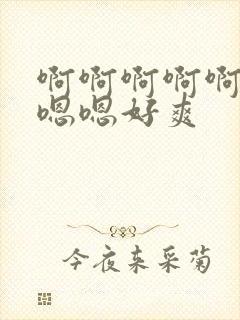 啊啊啊啊啊
嗯嗯好爽
今夜来采菊